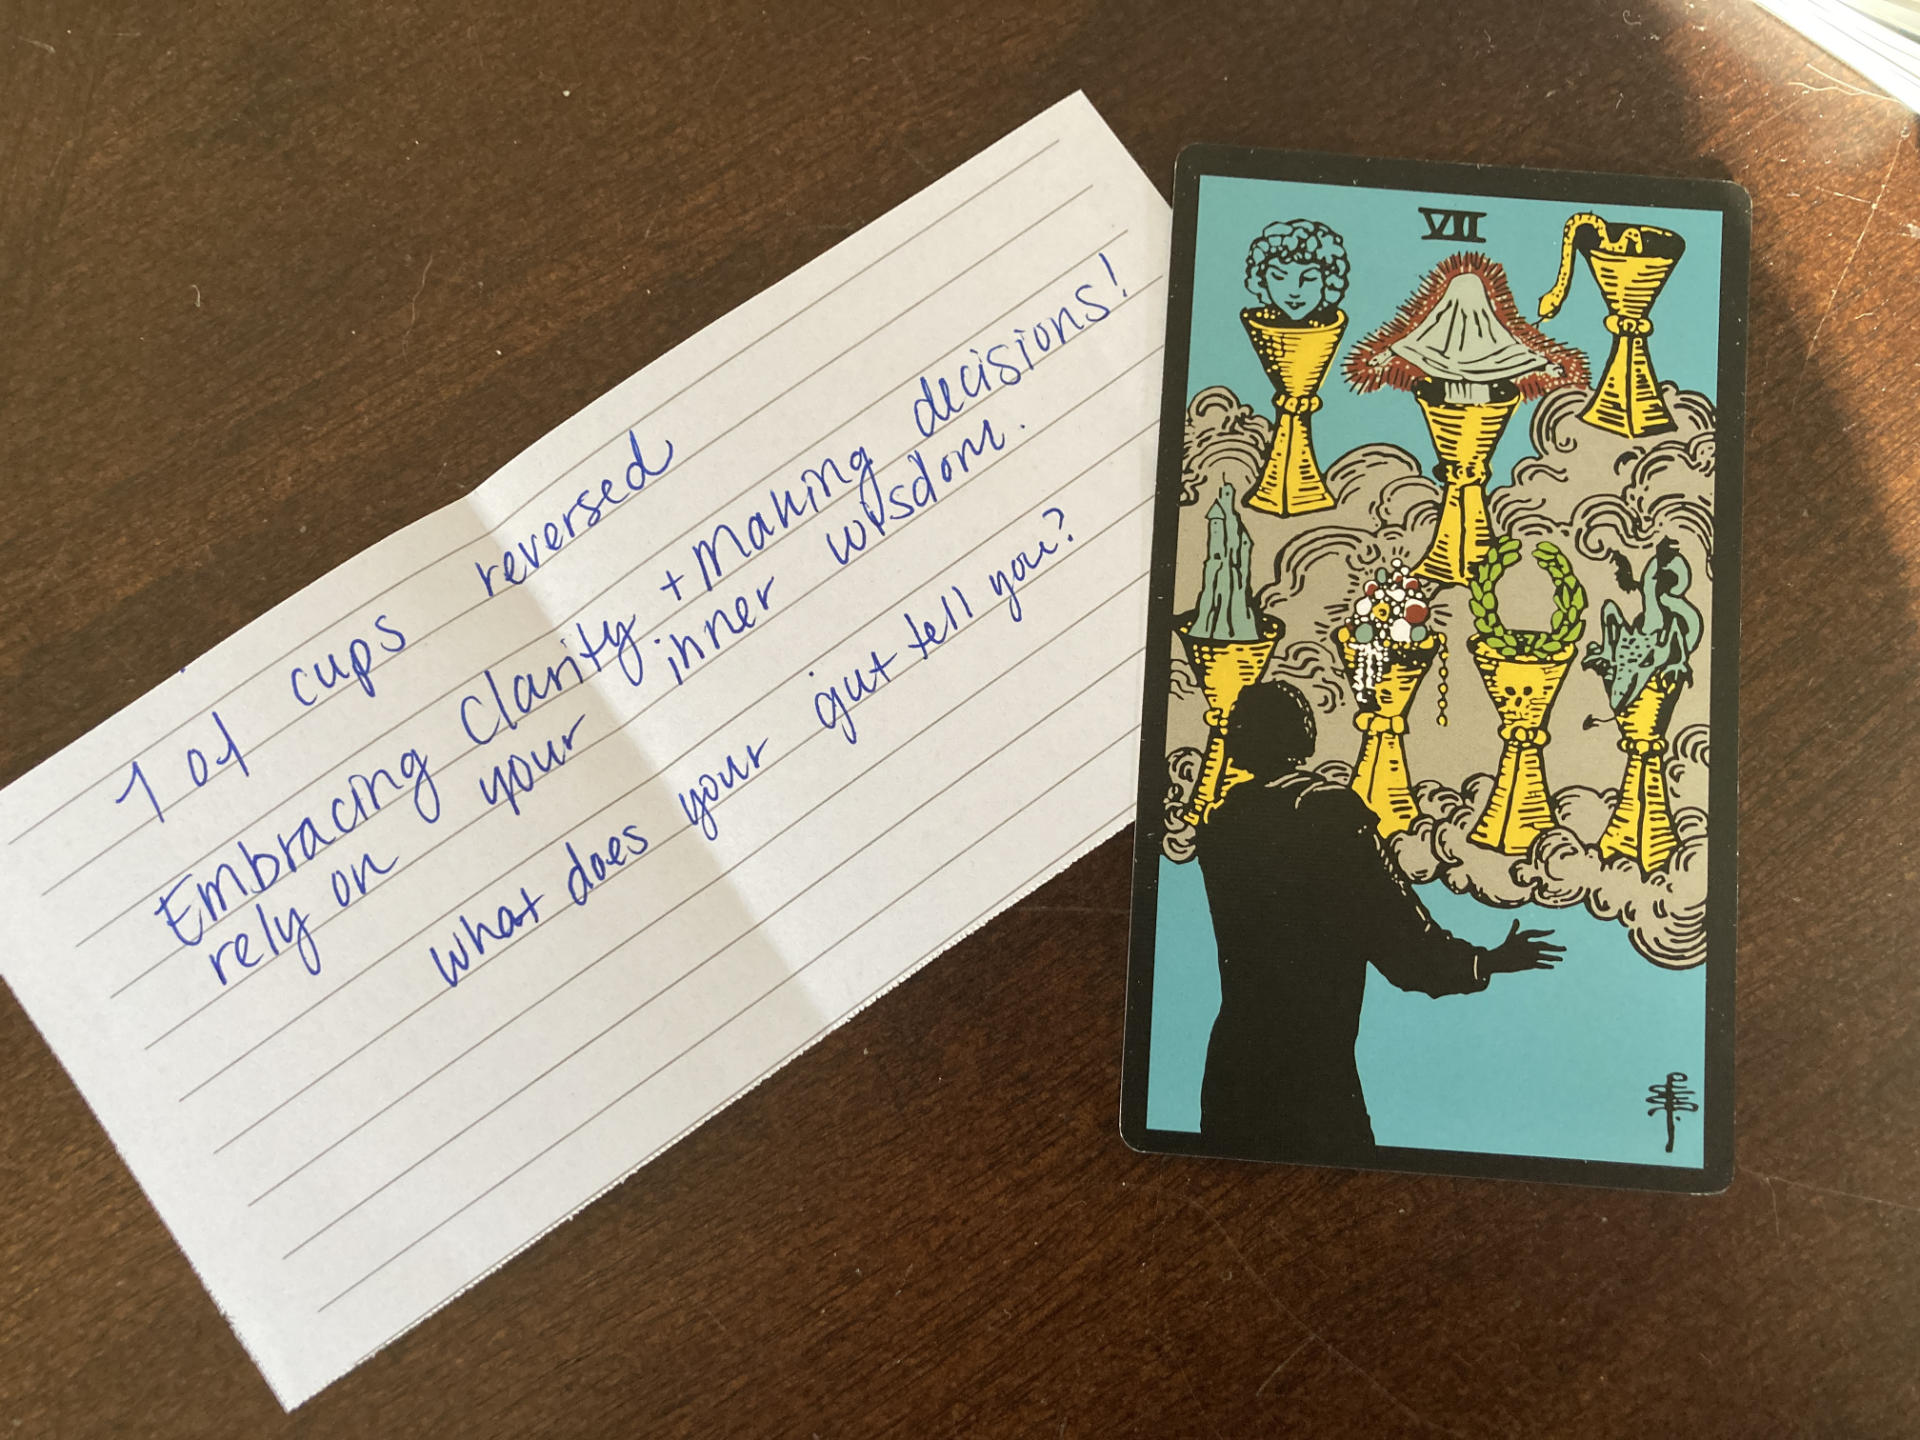 7 of cups reversed
Embracing clarity + making decisions!
rely on your inner wisdom.
what does your gut tell you?
VII